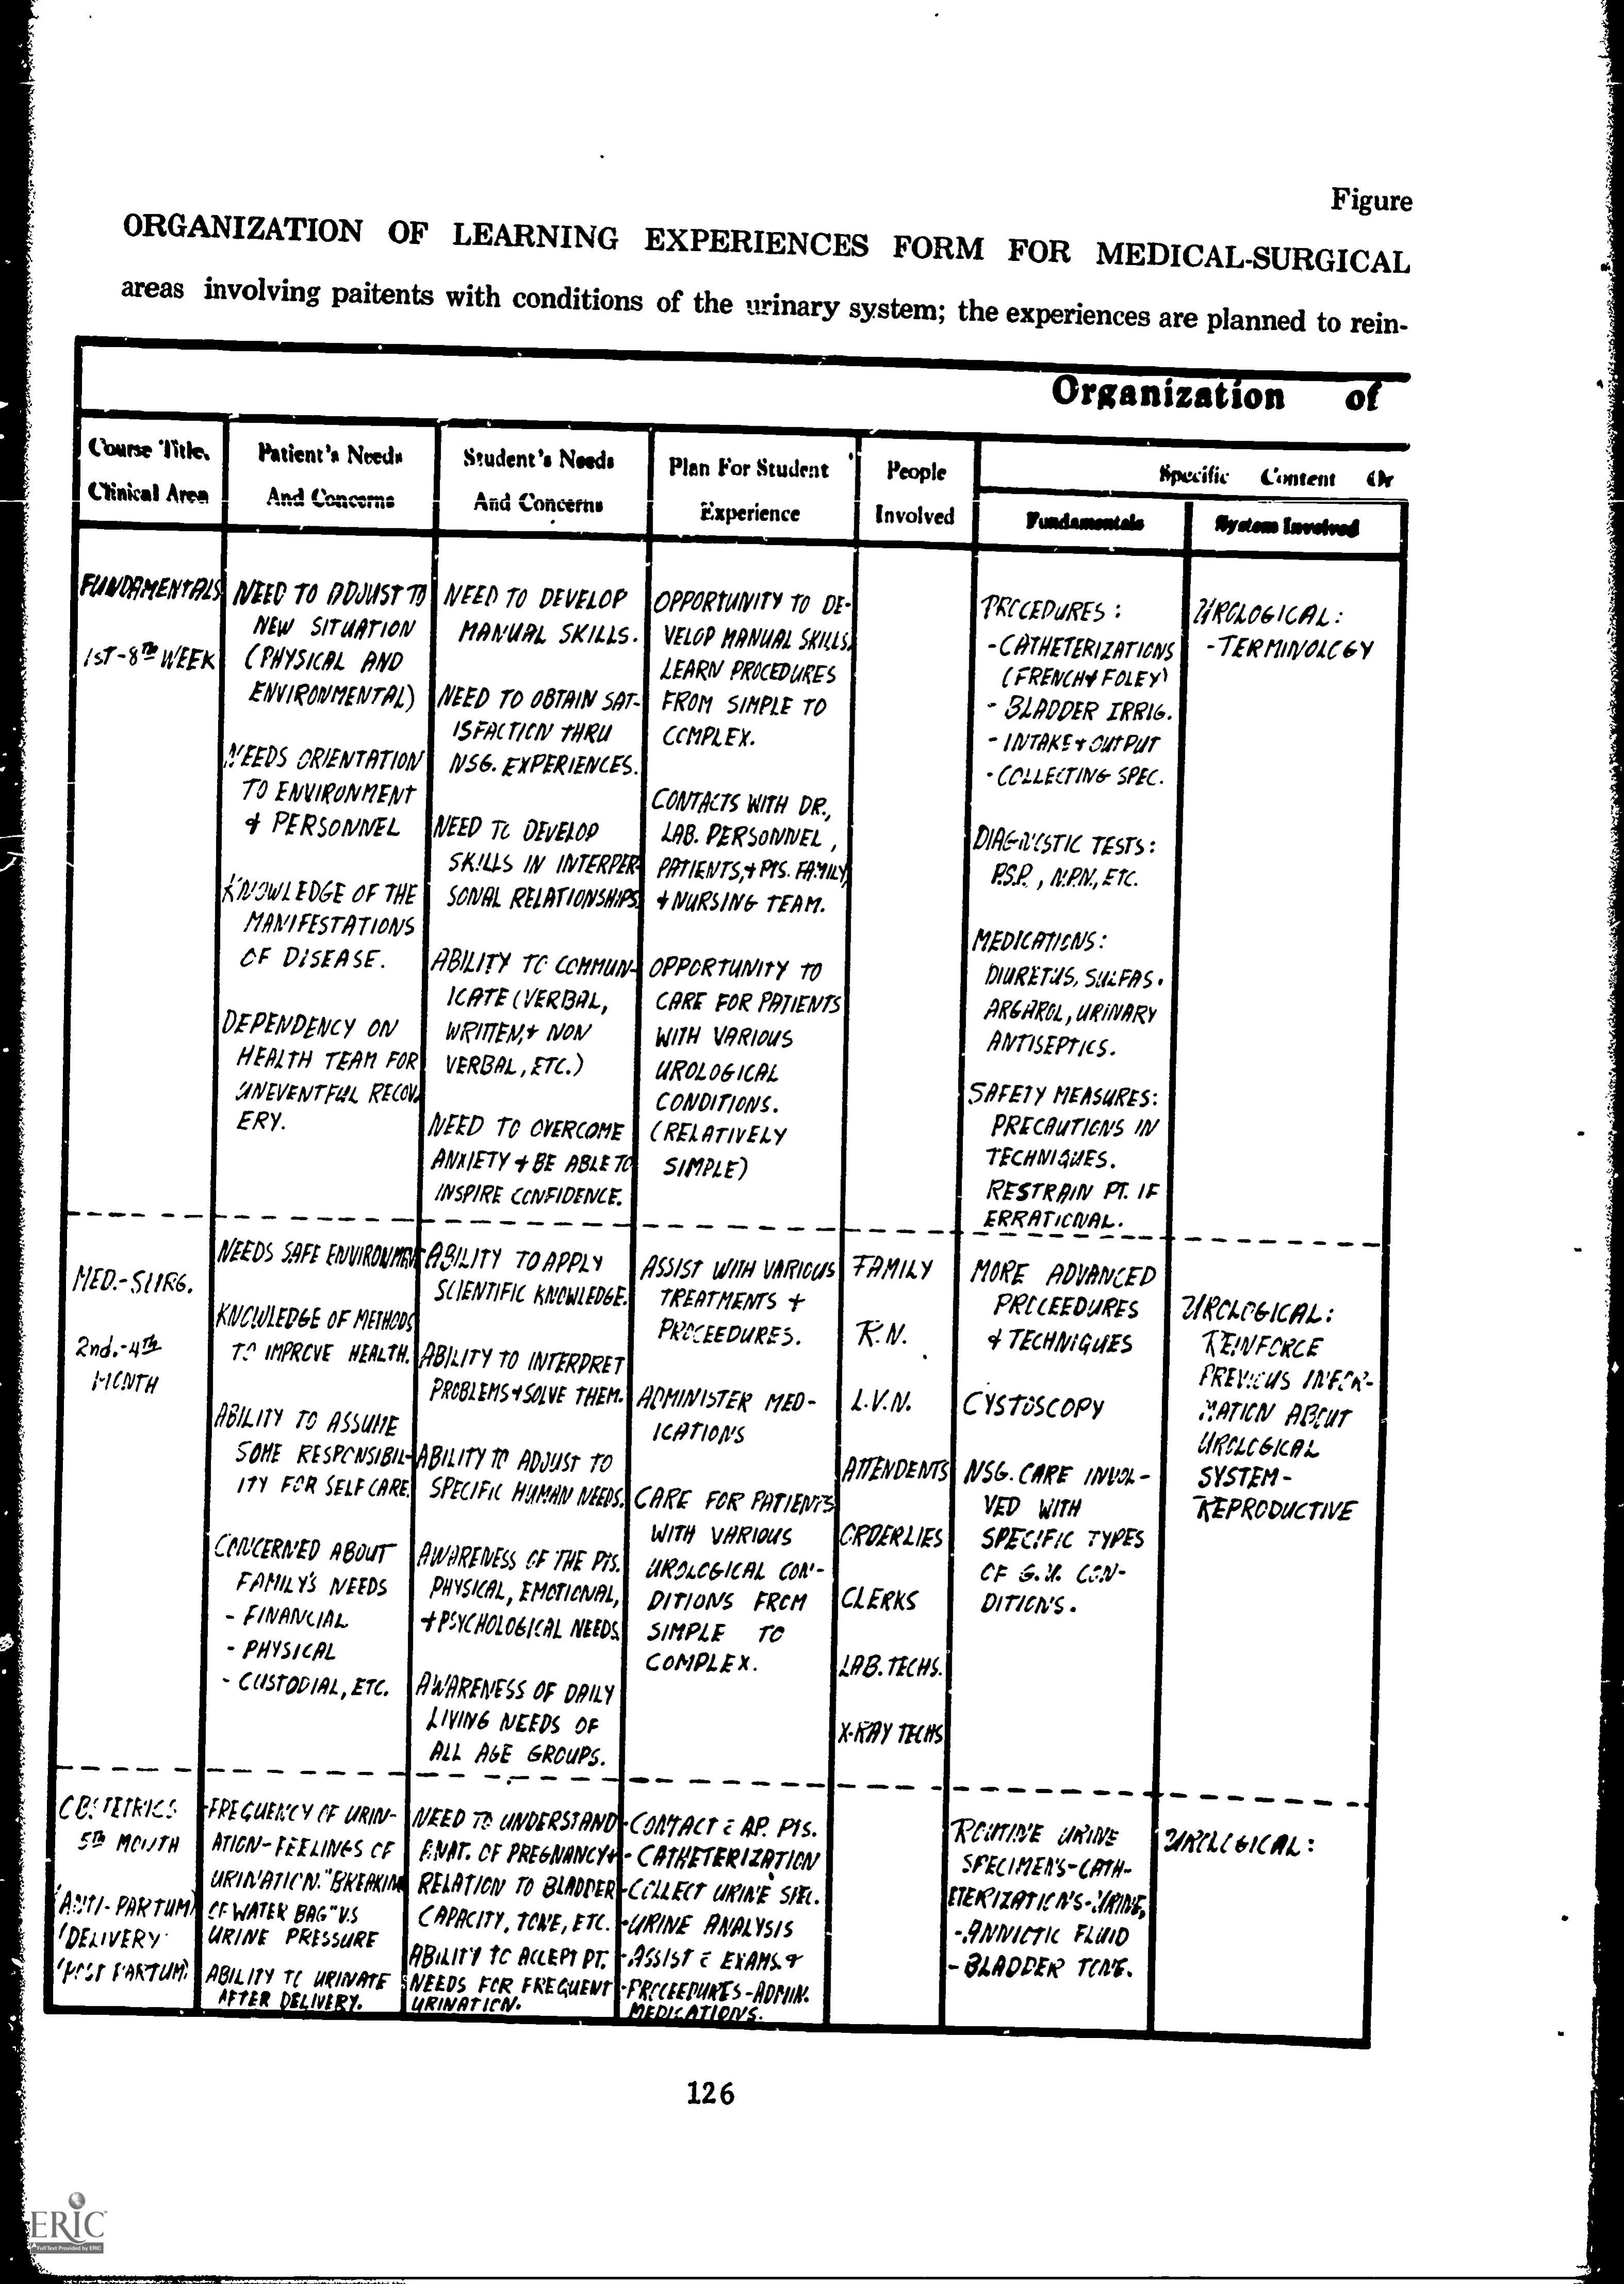 Figure
ORGANIZATION OF LEARNING EXPERIENCES FORM FOR MEDICAL-SURGICAL
areas involving paitents with conditions of the urinary system; the experiences are planned to rein-
Organization of
Course Title,
Clinical Area
Patient's Needs
And Concerns
Student's Needs
And Concerns
Plan For Student
Experience
People
Involved
Specific Content Or
Fundamentals
System Involved
FUNDAMENTALS
1ST-8TH WEEK
NEED TO ADJUST TO
NEW SITUATION
(PHYSICAL AND
ENVIRONMENTAL)
NEEDS ORIENTATION
TO ENVIRONMENT
& PERSONNEL
KNOWLEDGE OF THE
MANIFESTATIONS
OF DISEASE.
DEPENDENCY ON
HEALTH TEAM FOR
UNEVENTFUL RECOV-
ERY.
NEED TO DEVELOP
MANUAL SKILLS.
NEED TO OBTAIN SAT-
ISFACTION THRU
NSG. EXPERIENCES.
NEED TO DEVELOP
SKILLS IN INTERPER-
SONAL RELATIONSHIPS.
ABILITY TO COMMUN-
ICATE (VERBAL,
WRITTEN, & NON
VERBAL, ETC.)
NEED TO OVERCOME
ANXIETY & BE ABLE TO
INSPIRE CONFIDENCE.
OPPORTUNITY TO DE-
VELOP MANUAL SKILLS,
LEARN PROCEDURES
FROM SIMPLE TO
COMPLEX.
CONTACTS WITH DR.,
LAB. PERSONNEL,
PATIENTS, & PTS. FAMILY,
& NURSING TEAM.
OPPORTUNITY TO
CARE FOR PATIENTS
WITH VARIOUS
UROLOGICAL
CONDITIONS.
(RELATIVELY
SIMPLE)
PROCEDURES:
-CATHETERIZATIONS
(FRENCH & FOLEY)
- BLADDER IRRIG.
- INTAKE & OUTPUT
- COLLECTING SPEC.
DIAGNOSTIC TESTS:
P.S.P., N.P.N., ETC.
MEDICATIONS:
DIURETUS, SULFAS.
ARGAROL, URINARY
ANTISEPTICS.
SAFETY MEASURES:
PRECAUTIONS IN
TECHNIQUES.
RESTRAIN PT. IF
ERRATIONAL.
UROLOGICAL:
-TERMINOLOGY
MED.-SURG.
2nd.-4TH
MONTH
NEEDS SAFE ENVIRONMENT
KNOWLEDGE OF METHODS
TO IMPROVE HEALTH.
ABILITY TO ASSUME
SOME RESPONSIBIL-
ITY FOR SELF CARE.
CONCERNED ABOUT
FAMILY'S NEEDS
- FINANCIAL
- PHYSICAL
- CUSTODIAL, ETC.
ABILITY TO APPLY
SCIENTIFIC KNOWLEDGE.
ABILITY TO INTERPRET
PROBLEMS & SOLVE THEM.
ABILITY TO ADJUST TO
SPECIFIC HUMAN NEEDS.
AWARENESS OF THE PTS.
PHYSICAL, EMOTIONAL,
& PSYCHOLOGICAL NEEDS
AWARENESS OF DAILY
LIVING NEEDS OF
ALL AGE GROUPS.
ASSIST WITH VARIOUS
TREATMENTS &
PROCEEDURES.
ADMINISTER MED-
ICATIONS
CARE FOR PATIENTS
WITH VARIOUS
UROLOGICAL CON-
DITIONS FROM
SIMPLE TO
COMPLEX.
FAMILY
R.N.
L.V.N.
ATTENDENTS
ORDERLIES
CLERKS
LAB. TECHS.
X-RAY TECHS
MORE ADVANCED
PROCEEDURES
& TECHNIQUES
CYSTOSCOPY
NSG. CARE INVOL-
VED WITH
SPECIFIC TYPES
OF G.U. CON-
DITIONS.
UROLOGICAL:
REINFORCE
PREVIOUS INFOR-
MATION ABOUT
UROLOGICAL
SYSTEM-
REPRODUCTIVE
OBSTETRICS
5TH MONTH
(ANTI-PARTUM)
(DELIVERY
(POST PARTUM)
-FREQUENCY OF URIN-
ATION-FEELINGS OF
URINATION. "BREAKING
OF WATER BAG" VS
URINE PRESSURE
ABILITY TO URINATE
AFTER DELIVERY.
NEED TO UNDERSTAND
ANAT. OF PREGNANCY &
RELATION TO BLADDER
CAPACITY, TONE, ETC.
ABILITY TO ACCEPT PT.
NEEDS FOR FREQUENT
URINATION.
-CONTACT c̄ AP. PTS.
- CATHETERIZATION
-COLLECT URINE SPEC.
-URINE ANALYSIS
-ASSIST c̄ EXAMS. &
-PROCEEDURES-ADMIN.
MEDICATIONS.
ROUTINE URINE
SPECIMENS-CATH-
ETERIZATIONS-URINE,
-ANNIOTIC FLUID
-BLADDER TONE.
UROLOGICAL:
126
ERIC
Full Text Provided by ERIC